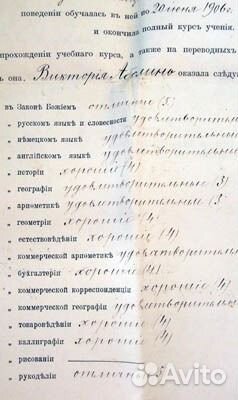 поведеніи обучалась въ ней по 20 іюня 1906 г.
и окончила полный курсъ ученія.
прохожденіи учебнаго курса, а также на переводныхъ
она, Викторія оказала слѣду
въ Законѣ Божіемъ отличные (5)
„ русскомъ языкѣ и словесности удовлетворительн
„ нѣмецкомъ языкѣ удовлетворительные
„ англійскомъ языкѣ удовлетворительн
„ исторіи хорошіе (4)
„ географіи удовлетворительные (3)
„ ариѳметикѣ удовлетворительные (3
„ геометріи хорошіе (4)
„ естествовѣдѣніи хорошіе (4)
„ коммерческой ариѳметикѣ удовлетворительн
„ бухгалтеріи хорошіе (4)
„ коммерческой корреспонденціи хорошіе (4)
„ коммерческой географіи удовлетворительн
„ товаровѣдѣніи хорошіе (4)
„ каллиграфіи хорошіе (4)
„ рисованіи
„ рукодѣліи отличные (5)
Avito